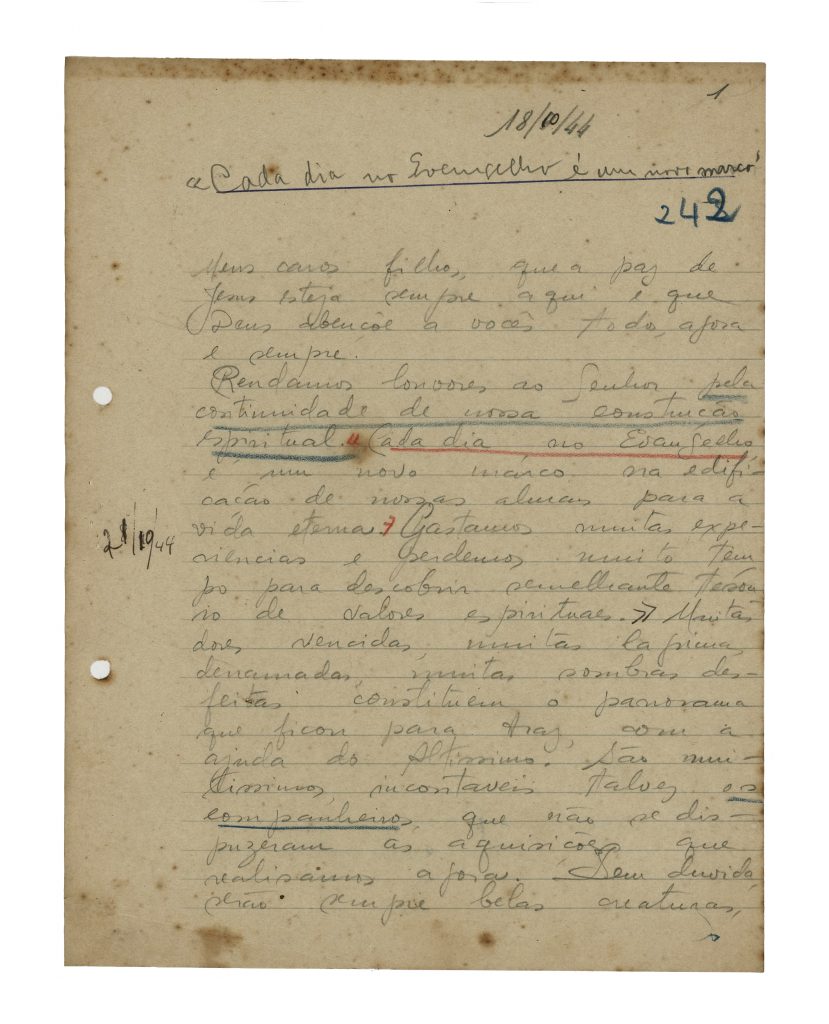 1
18/10/44
"Cada dia no Evangelho é um novo marco"
242
Meus caros filhos, que a paz de
Jesus esteja sempre aqui e que
Deus abençõe a vocês todos, agora
e sempre.
Rendamos louvores ao Senhor pela
continuidade de nossa construcão
espiritual. "Cada dia no Evangelho
é um novo márco na edifi-
cacão de nossas almas para a
vida eterna." Gastamos muitas expe-
21/10/44
riencias e perdemos muito tem
po para descobrir semelhante tesou
ro de valores espirituaes. Muitas
dores vencidas, muitas lagrimas
derramadas, muitas sombras des-
feitas constituem o panorama
que ficou para traz, com a
ajuda do Altissimo. São mui-
tissimos, incontaveis talvez os
companheiros, que não se dis-
puzeram ás aquisicões que
realisámos agora. Sem duvida
serão sempre belas creaturas,